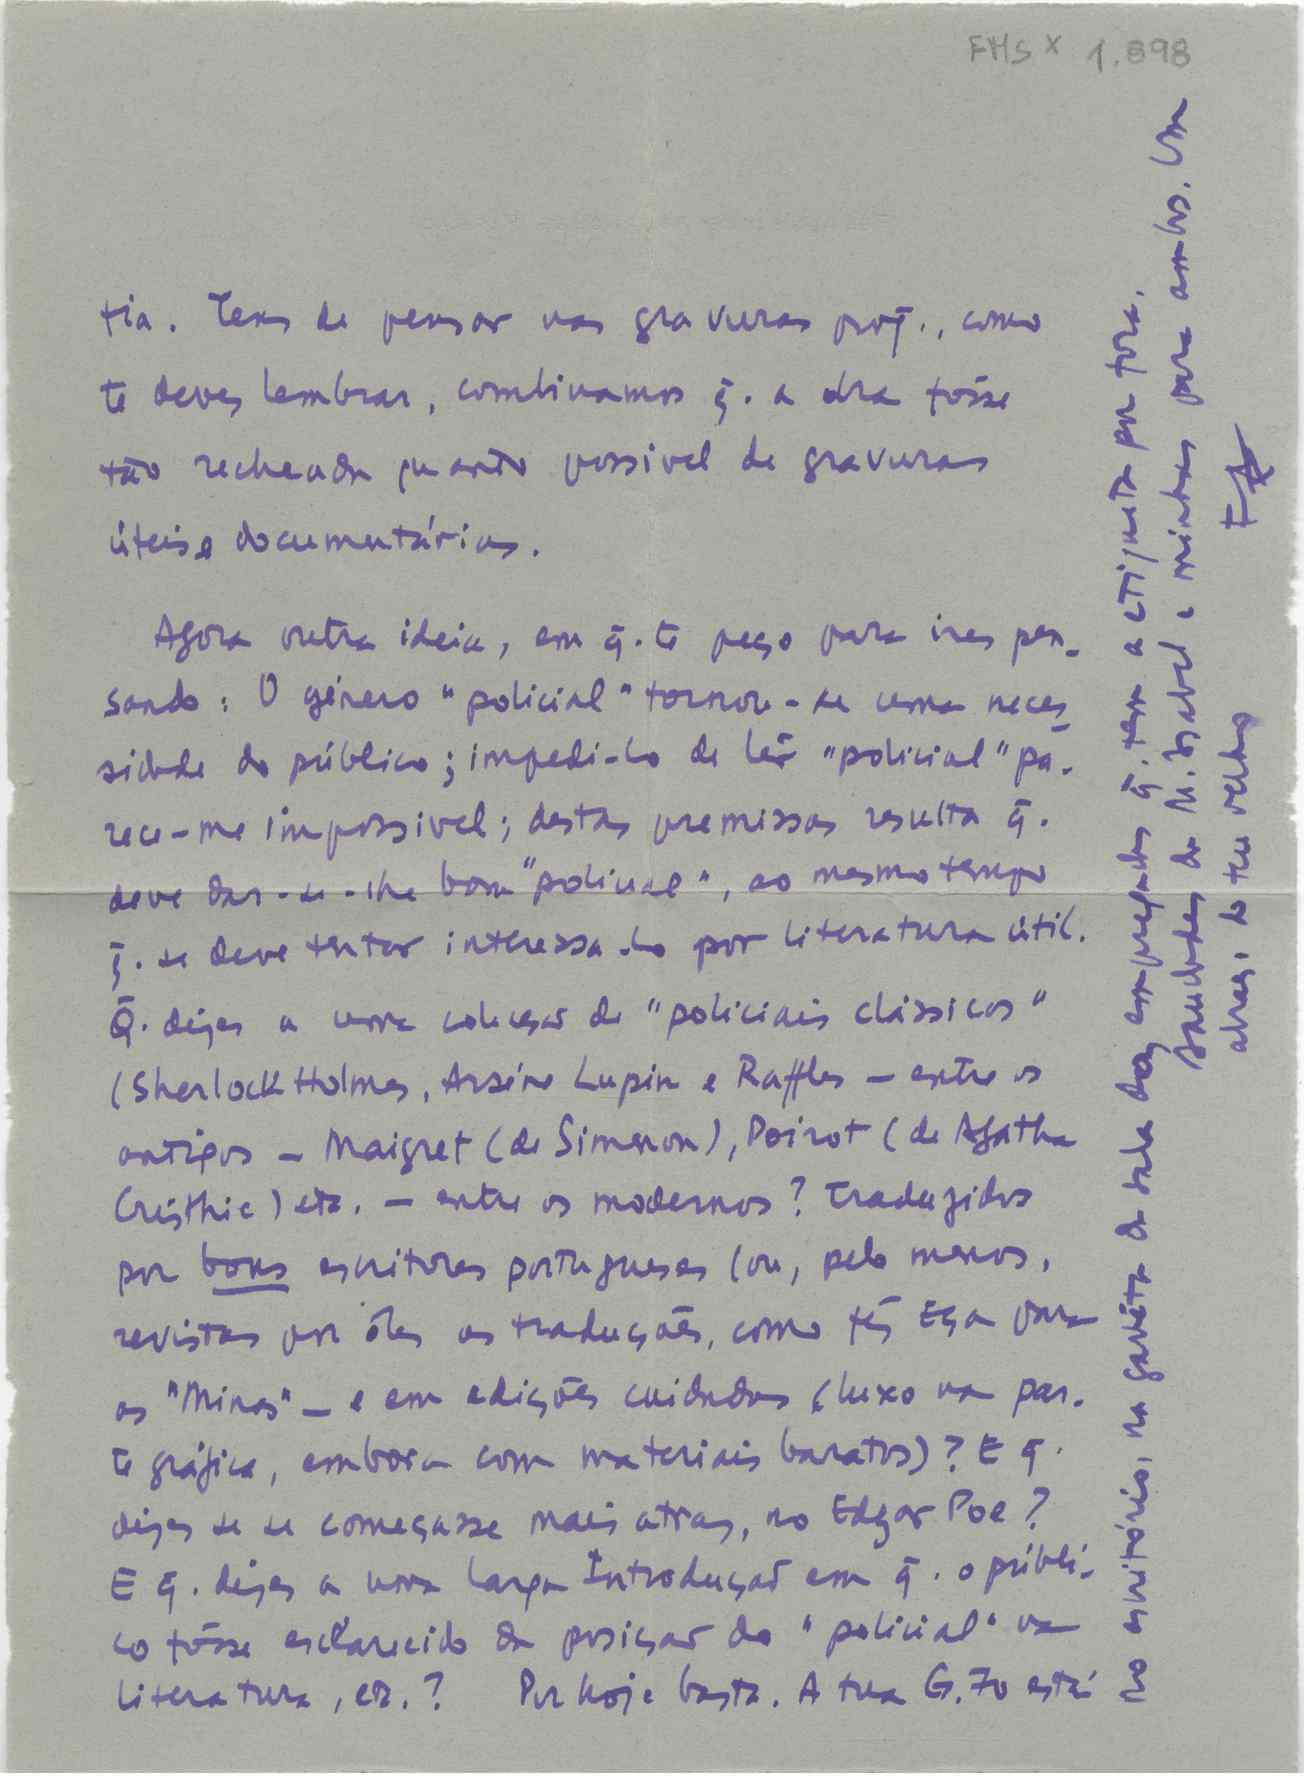 FMS x 1.898
tia. Tens de pensar nas gravuras porq̄., como
te deves lembrar, combinamos q̄. a obra fôsse
tão recheada quanto possivel de gravuras
úteis e documentárias.
Agora outra ideia, em q̄. te peço para ires pen-
sando: O género "policial" tornou-se uma neces-
sidade do público; impedi-lo de lêr "policial" pa-
rece-me impossivel; destas premissas resulta q̄.
deve dar-se-lhe bom "policial", ao mesmo tempo
q̄. se deve tentar interessa-lo por literatura útil.
Q̄. dizes a uma colecção de "policiais clássicos"
(Sherlock Holmes, Arséne Lupin e Raffles — entre os
antigos — Maigret (de Simenon), Poirot (de Agatha
Cristhie) etc. — entre os modernos? Traduzidos
por bons escritores portugueses (ou, pelo menos,
revistas por êles as traduções, como fês Eça para
as "Minas" — e em edições cuidadas (luxo na par-
te gráfica, embora com materiais baratos)? E q̄.
dizes se se começasse mais atras, no Edgar Poe?
E q̄. dizes a uma larga Introdução em q̄. o públi-
co fôsse esclarecido da posição do "policial" na
literatura, etc.? Por hoje basta. A tua G. 70 está
no escritório, na gavêta da sala dos empregados q̄. tem a etiqueta por fora.
Saudades da M. Isabel e minhas para ambos. Um
abraço do teu velho